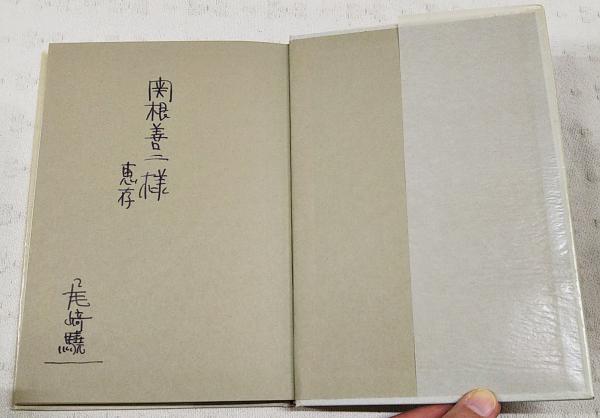 関根善二様
恵存
尾崎驍